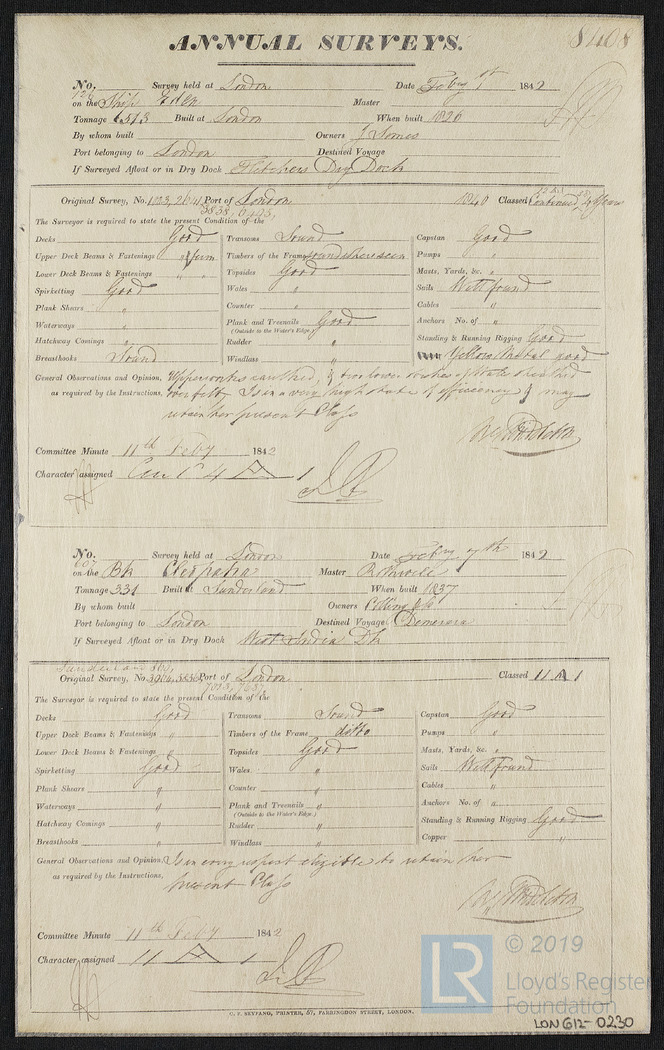 ANNUAL SURVEYS.
8408
No. 126 Survey held at London Date Feby 1st 1842
on the Ship Eden Master
Tonnage 513 Built at London When built 1826
By whom built Owners J Somes
Port belonging to London Destined Voyage
If Surveyed Afloat or in Dry Dock Fletchers Dry Dock
Original Survey, No. Port of London 1840 Classed Continued 4 Years
The Surveyor is required to state the present Condition of the
Decks Good Transoms Sound Capstan Good
Upper Deck Beams & Fastenings " firm Timbers of the Frame sound where seen Pumps "
Lower Deck Beams & Fastenings " " Topsides Good Masts, Yards, &c. "
Spirketting Good Wales " Sails Well found
Plank Shears " Counter " Cables "
Waterways " Plank and Treenails Good Anchors No. of "
(Outside to the Water's Edge)
Hatchway Comings " Rudder " Standing & Running Rigging Good
Breasthooks Sound Windlass " Yellow Metal good
General Observations and Opinion, Uppersides caulked, & two lower strakes of Wales
as required by the Instructions, Is in a very high state of efficiency & may
retain her present Class
Committee Minute 11th Feby 1842
Character assigned Con C 4 A 1
No. 607 Survey held at London Date Feby 7th 1842
on the Bk Cleopatra Master
Tonnage 331 Built at Sunderland When built 1837
By whom built Owners
Port belonging to London Destined Voyage Demerara
If Surveyed Afloat or in Dry Dock West India Dk
Original Survey, No. Port of London Classed 11 A 1
The Surveyor is required to state the present Condition of the
Decks Good Transoms Sound Capstan Good
Upper Deck Beams & Fastenings " Timbers of the Frame ditto Pumps "
Lower Deck Beams & Fastenings " Topsides Good Masts, Yards, &c. "
Spirketting Good Wales " Sails Well found
Plank Shears " Counter " Cables "
Waterways " Plank and Treenails " Anchors No. of "
(Outside to the Water's Edge.)
Hatchway Comings " Rudder " Standing & Running Rigging Good
Breasthooks " Windlass " Copper "
General Observations and Opinion, Is in every respect eligible to retain her
as required by the Instructions, present Class
Committee Minute 11th Feby 1842
Character assigned 11 A 1
C. F. SEYFANG, PRINTER, 57, FARRINGDON STREET, LONDON.
LR © 2019
Lloyd's Register
Foundation
LON 612-0230